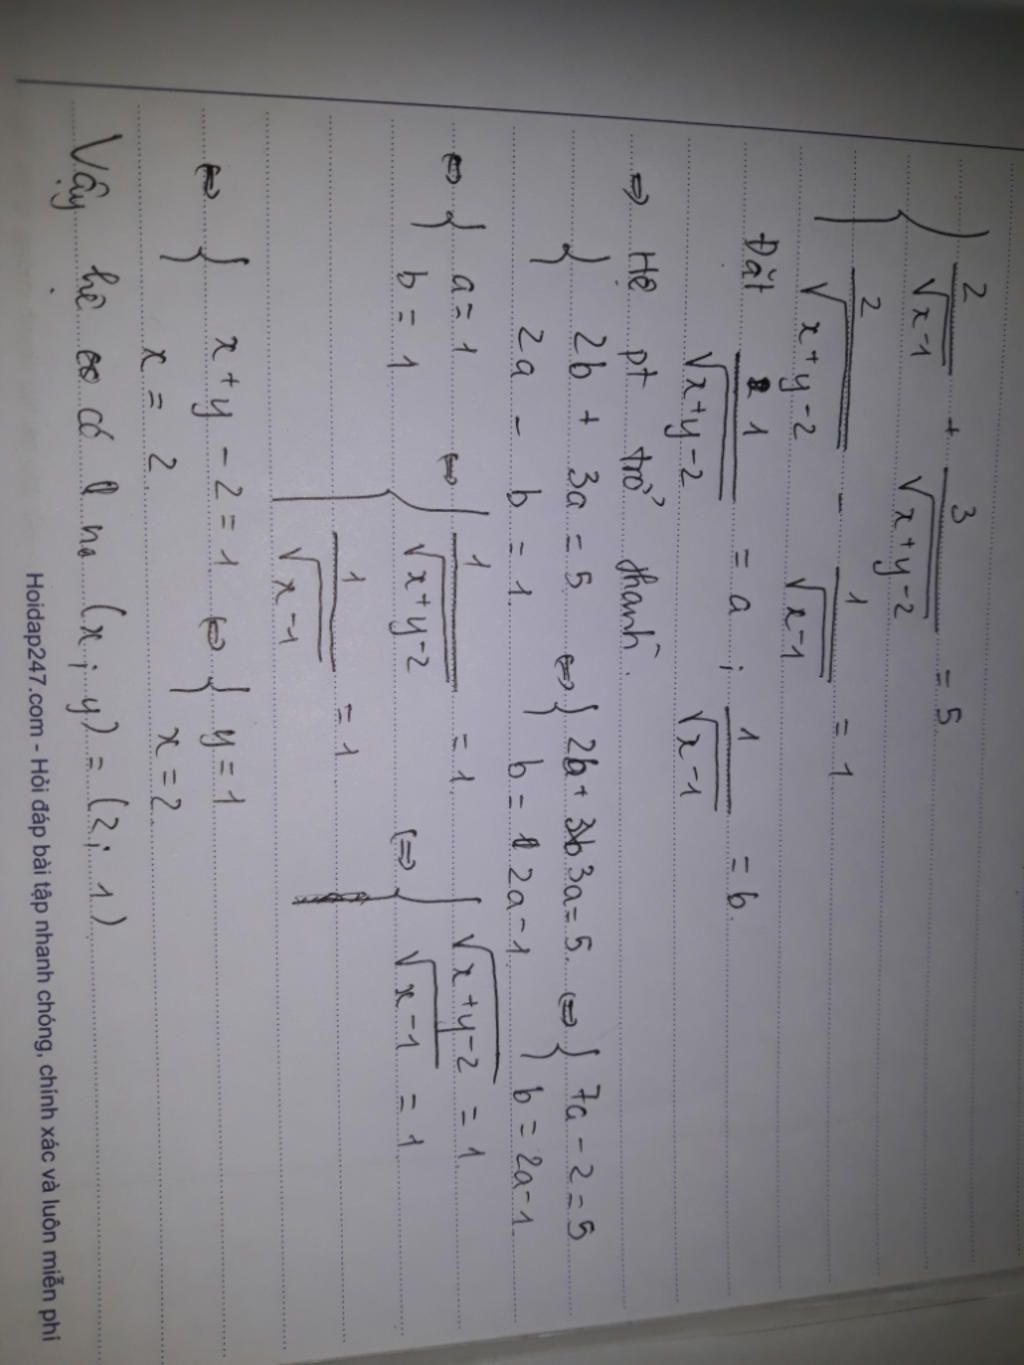 { 2/√(x-1) + 3/√(x+y-2) = 5
{ 2/√(x+y-2) - 1/√(x-1) = 1
Đặt 1/√(x+y-2) = a ; 1/√(x-1) = b.
=> Hê pt trở thanh.
{ 2b + 3a = 5 <=> { 2b + 3a = 5. <=> { 7a - 2 = 5
{ 2a - b = 1. { b = 2a - 1 { b = 2a - 1.
<=> { a = 1 <=> { 1/√(x+y-2) = 1. <=> { √(x+y-2) = 1.
{ b = 1 { 1/√(x-1) = 1 { √(x-1) = 1.
<=> { x + y - 2 = 1 <=> { y = 1
{ x = 2. { x = 2.
Vậy hê có no (x ; y) = (2 ; 1)
Hoidap247.com - Hỏi đáp bài tập nhanh chóng, chính xác và luôn miễn phí